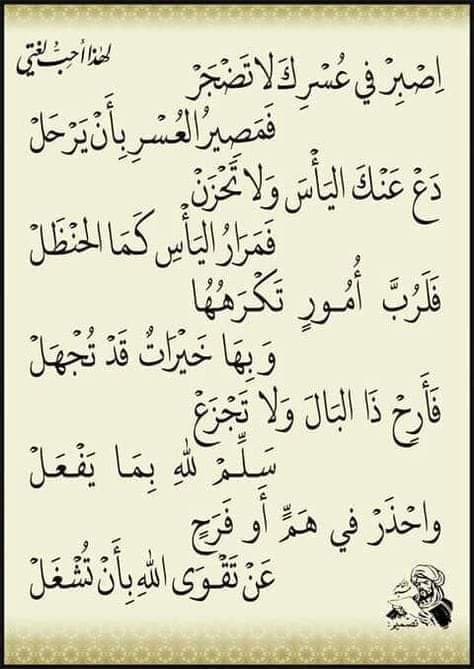 لهذا أحب لغتي
اِصْبِرْ في عُسْرِكَ لا تَضْجَرْ
فَمَصِيرُ العُسْرِ بِأَنْ يَرْحَلْ
دَعْ عَنْكَ اليَأْسَ وَلا تَحْزَنْ
فَمَرَارُ اليَأْسِ كَمَا الحَنْظَلْ
فَلَرُبَّ أُمُورٍ تَكْرَهُهُا
وَبِهَا خَيْرَاتٌ قَدْ تُجْهَلْ
فَأَرِحْ ذَا البَالَ وَلا تَجْزَعْ
سَلِّمْ للهِ بِمَا يَفْعَلْ
واحْذَرْ في هَمٍّ أو فَرَحٍ
عَنْ تَقْوَى اللهِ بِأَنْ تُشْغَلْ